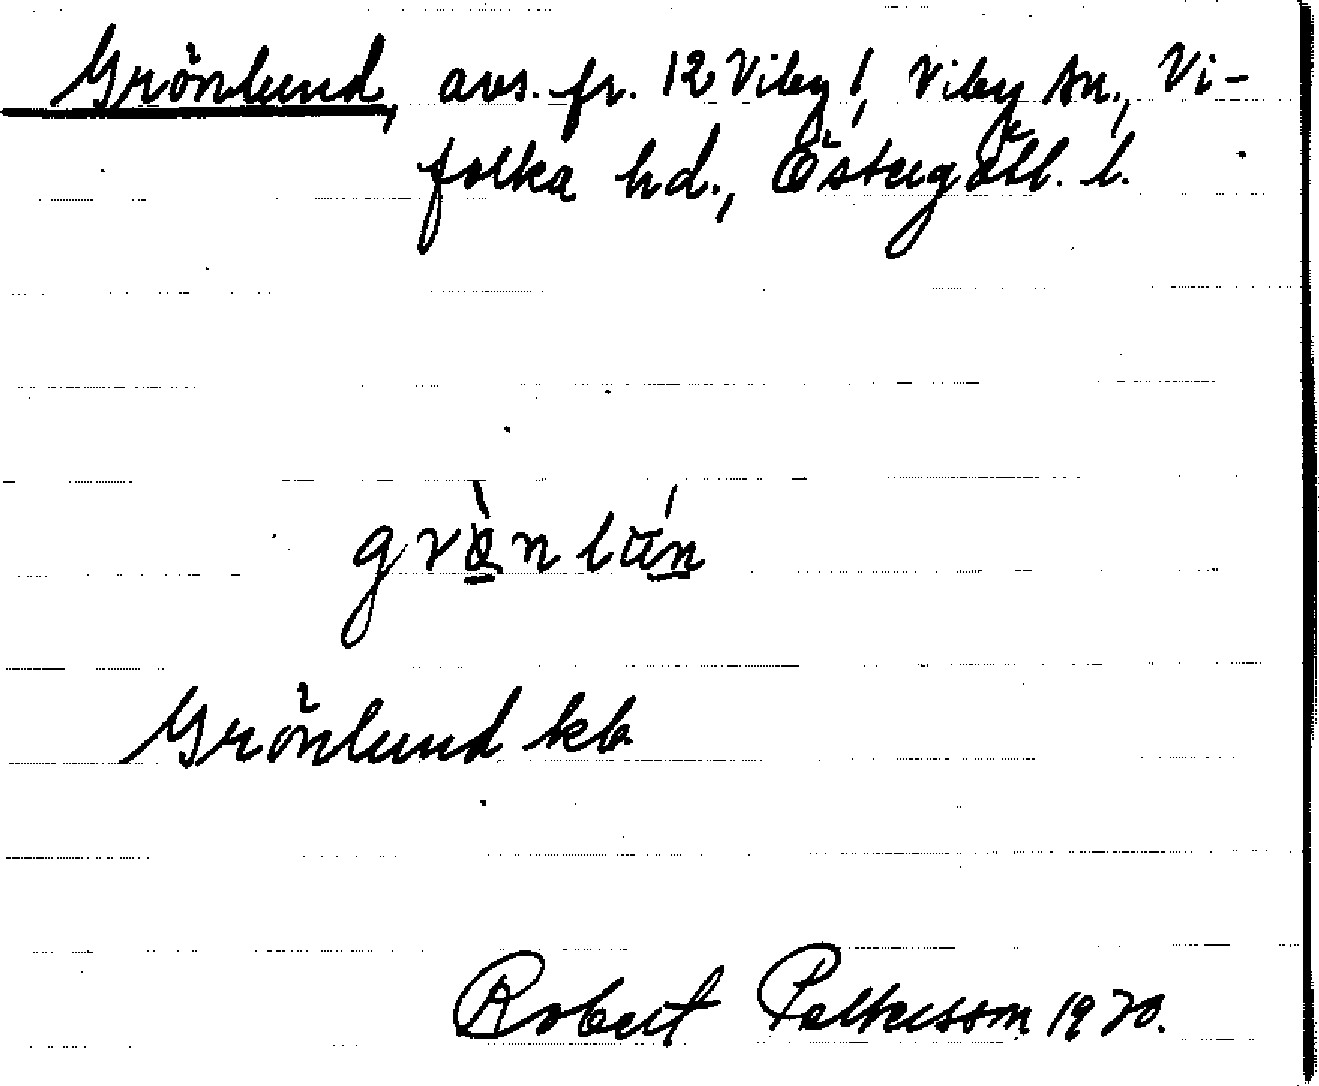 Grönlund, avs. fr. 12 Viby!, Viby sn., Vi-
folka hd., Östergötl. l.
grø̀nlún
Grönlund kb
Robert Palkesson 1970.